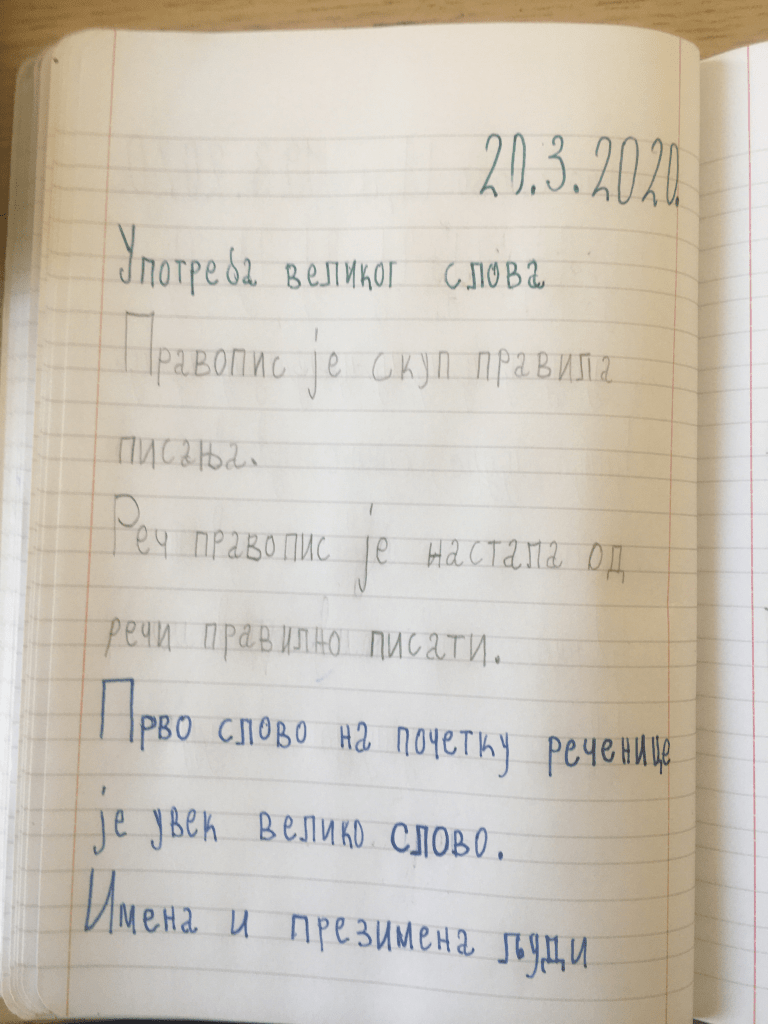 20.3.2020.
Употреба великог слова
Правопис је скуп правила
писања.
Реч правопис је настала од
речи правилно писати.
Прво слово на почетку реченице
је увек велико слово.
Имена и презимена људи